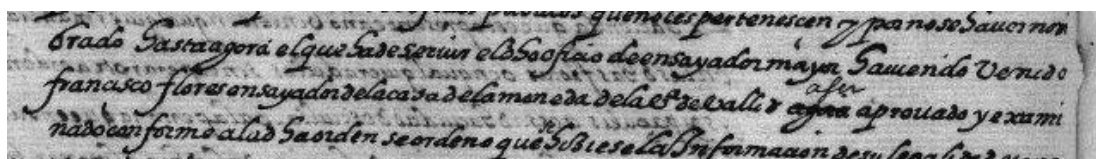 que no les pertenescen y por no se haver nom
brado hasta agora el que ha de servir el dho oficio de ensayador mayor haviendo venido
francisco flores ensayador de la casa de la moneda de la çd de Vallid a ser aprovado y exami
nado conforme a la dha orden se ordeno que se hiziese la Informacion de su legalidad